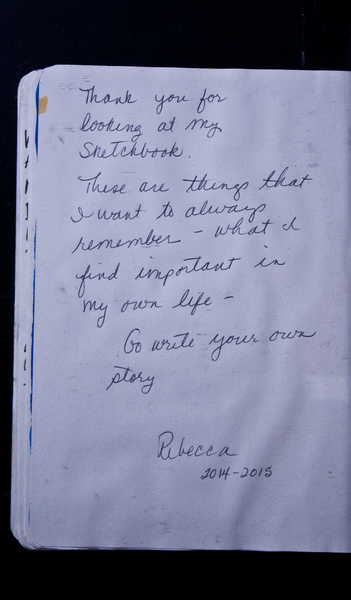 Thank you for
looking at my
Sketchbook.
These are things that
I want to always
remember - what I
find important in
my own life -
Go write your own
story
Rebecca
2014-2015